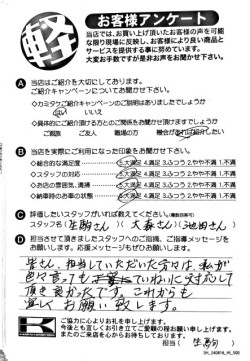 軽
お客様アンケート
当店では、お買い上げ頂いたお客様の声を可能
な限り現場に反映し、お客様により良い商品と
サービスを提供する事に努めています。
大変お手数ですが是非お声をお聞かせ下さい。
A 当店はご紹介を大切にしております。
ご紹介キャンペーンについてお聞かせ下さい。
◇カミタケご紹介キャンペーンのご説明はありましたでしょうか
はい いいえ
◇具体的にご紹介頂ける方とのご関係をお聞かせ頂けますでしょうか
ご親族 ご友人 職場の方 機会があれば紹介したい
B 当店を実際にご利用になった印象をお聞かせ下さい。
◇総合的な満足度 5.大満足 4.満足 3.ふつう 2.やや不満 1.不満
◇スタッフの対応 5.大満足 4.満足 3.ふつう 2.やや不満 1.不満
◇お店の雰囲気、清掃 5.大満足 4.満足 3.ふつう 2.やや不満 1.不満
◇納車時のお車の状態 5.大満足 4.満足 3.ふつう 2.やや不満 1.不満
C 評価したいスタッフがいれば教えてください。(複数回答可)
スタッフ名(生駒さん)(大森さん)(池田さん)
D 担当させて頂きましたスタッフへのご指導、ご指導メッセージを
お願いします。応援メッセージもぜひお願い致します。
皆さん、担当していただいた方々は、私が
色々言っても丁寧にていねいに対応して
頂き良かったです。これからも
宜しくお願い致します。
ご協力に心よりお礼を申し上げます。
今後とも宜しくお引き立てご愛顧の程お願い申し上げます。
またのご来店を心からお待ちしております。
担当( 生駒 )